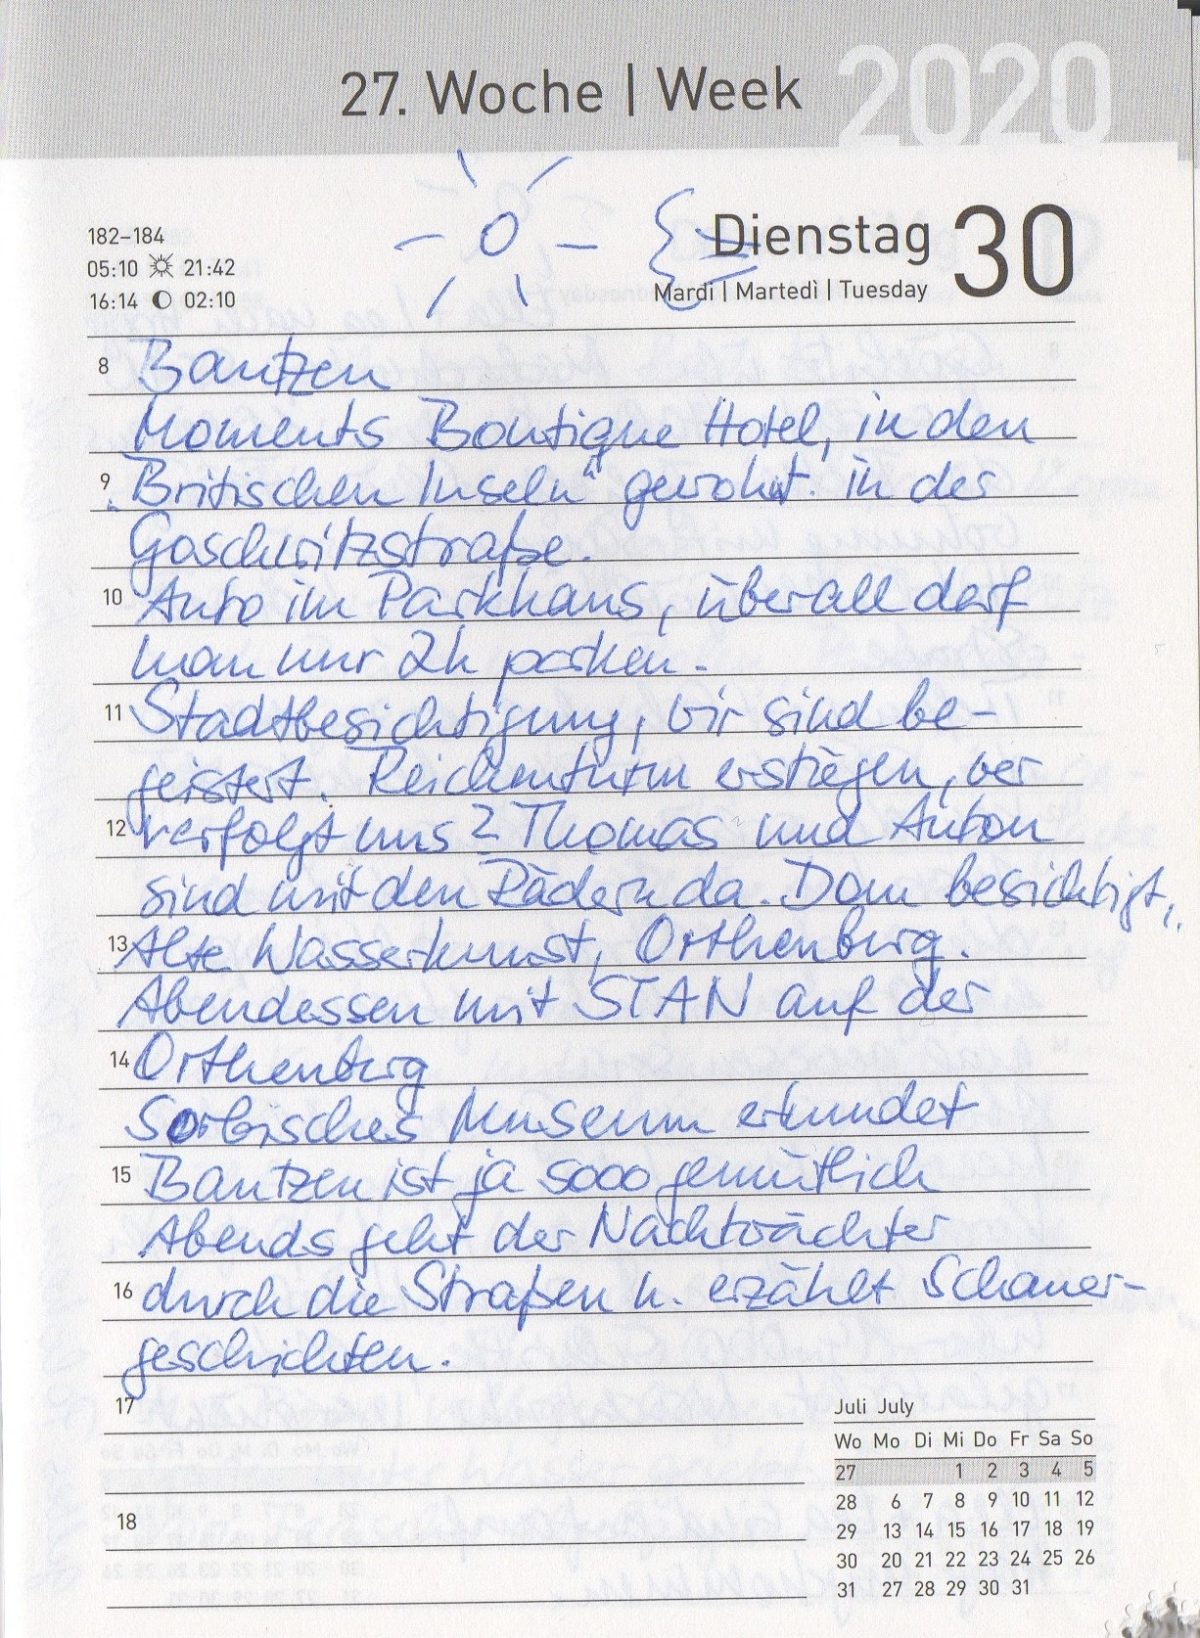 27. Woche | Week 2020
182–184
05:10 21:42
16:14 02:10
Dienstag 30
Mardi | Martedì | Tuesday
8 Bautzen
Moments Boutique Hotel, in den
9 „Britischen Inseln" gewohnt. in der
Goschwitzstraße.
10 Auto im Parkhaus, überall darf
man nur 2h parken.
11 Stadtbesichtigung, wir sind be-
geistert. Reichenturm erstiegen, wer
12 verfolgt uns? Thomas und Anton
sind mit den Rädern da. Dom besichtigt,
13 Alte Wasserkunst, Orthenburg.
Abendessen mit STAN auf der
14 Orthenburg
Sorbisches Museum erkundet
15 Bautzen ist ja sooo gemütlich
Abends geht der Nachtwächter
16 durch die Straßen u. erzählt Schauer-
geschichten.
17
18
Juli July
Wo Mo Di Mi Do Fr Sa So
27 1 2 3 4 5
28 6 7 8 9 10 11 12
29 13 14 15 16 17 18 19
30 20 21 22 23 24 25 26
31 27 28 29 30 31